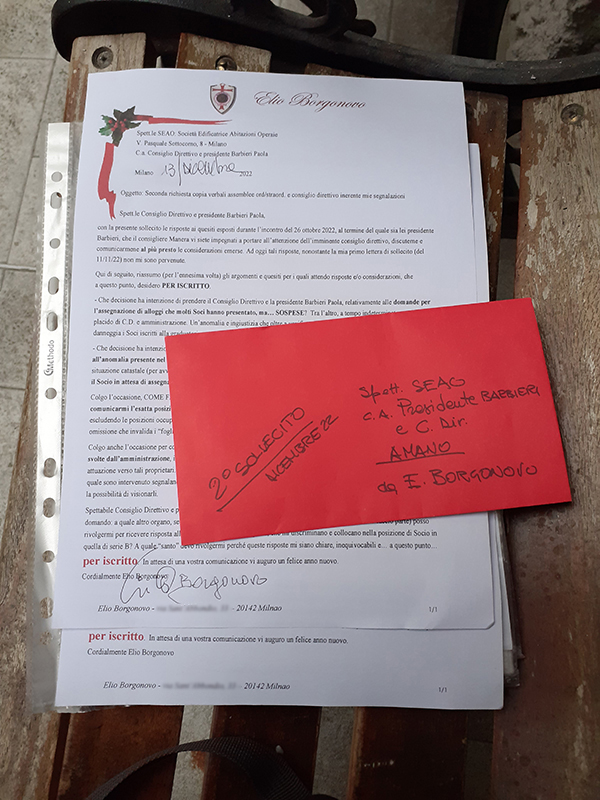 Elio Borgonovo
Spett.le SEAO: Società Edificatrice Abitazioni Operaie
V. Pasquale Sottocorno, 8 - Milano
C.a. Consiglio Direttivo e presidente Barbieri Paola
Milano 13/Dicembre 2022
Oggetto: Seconda richiesta copia verbali assemblee ord/straord. e consiglio direttivo inerente mie segnalazioni
Spett.le Consiglio Direttivo e presidente Barbieri Paola,
con la presente sollecito le risposte ai quesiti esposti durante l'incontro del 26 ottobre 2022, al termine del quale sia lei presidente
Barbieri, che il consigliere Manera vi siete impegnati a portare all'attenzione dell'imminente consiglio direttivo, discuterne e
comunicarmene al più presto le considerazioni emerse. Ad oggi tali risposte, nonostante la mia prima lettera di sollecito (del
11/11/22) non mi sono pervenute.
Qui di seguito, riassumo (per l'ennesima volta) gli argomenti e quesiti per i quali attendo risposte e/o considerazioni, che
a questo punto, desidero PER ISCRITTO.
- Che decisione ha intenzione di prendere il Consiglio Direttivo e la presidente Barbieri Paola, relativamente alle domande per
l'assegnazione di alloggi che molti Soci hanno presentato, ma... SOSPESE? Tra l'altro, a tempo indeterminato
placido di C.d. e amministrazione. Un'anomalia e ingiustizia che oltre a
danneggia i Soci iscritti alla
- Che decisione ha intenzione
all'anomalia presente nel
situazione catastale (per
il Socio in attesa di
Colgo l'occasione, COME
comunicarmi l'esatta
escludendo le posizioni
omissione che invalida i
Colgo anche l'occasione per
svolte dall'amministrazione,
attuazione verso tali
quale sono intervenuto
la possibilità di visionarli.
Spettabile Consiglio Direttivo e
domando: a quale altro organo, parte) posso
rivolgermi per ricevere risposta discriminano e collocano nella posizione di Socio in
quella di serie B? A quale "santo" devo rivolgermi perché queste risposte mi siano chiare, inequivocabili e... a questo punto...
per iscritto. In attesa di una vostra comunicazione vi auguro un felice anno nuovo.
Cordialmente Elio Borgonovo
Elio Borgonovo
Elio Borgonovo - 20142 Milnao
1/1
per iscritto. In attesa di una vostra comunicazione vi auguro un felice anno nuovo.
Cordialmente Elio Borgonovo
Elio Borgonovo - 20142 Milnao
1/1
Methodo
2° SOLLECITO
DICEMBRE 22
Spett. SEAO
C.A. Presidente BARBIERI
e C. Dir.
AMANO
da E. BORGONOVO